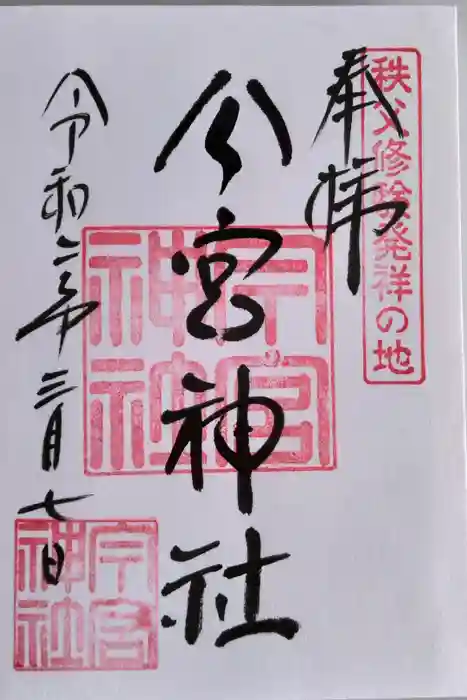 秩父修験発祥の地
奉拝
今宮神社
令和六年三月七日
今宮神社
今宮神社